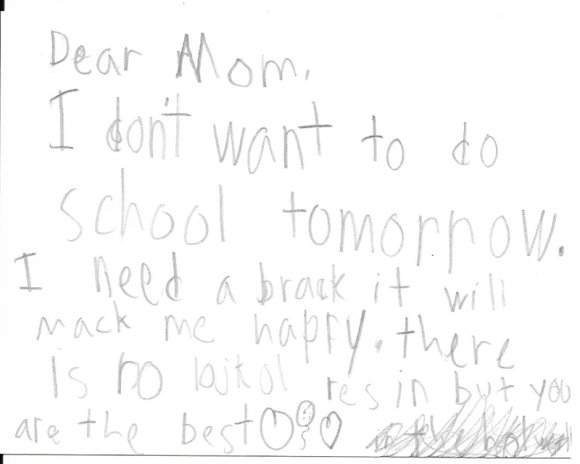 Dear Mom,
I don't want to do
school tomorrow.
I need a brack it will
mack me happy. there
is no lojkol res in but you
are the best